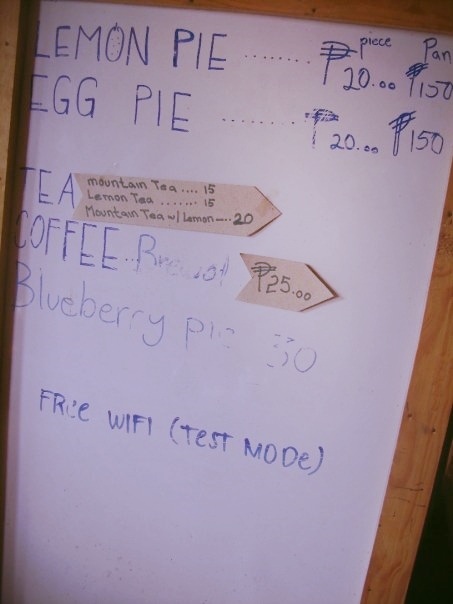 piece Pan
LEMON PIE ........ ₱20.00 ₱150
EGG PIE ......... ₱20.00 ₱150
TEA
mountain Tea .... 15
Lemon Tea ....... 15
Mountain Tea w/ Lemon --- 20
COFFEE.. Brewed ₱25.00
Blueberry pie 30
FREE WIFI (TEST MODE)